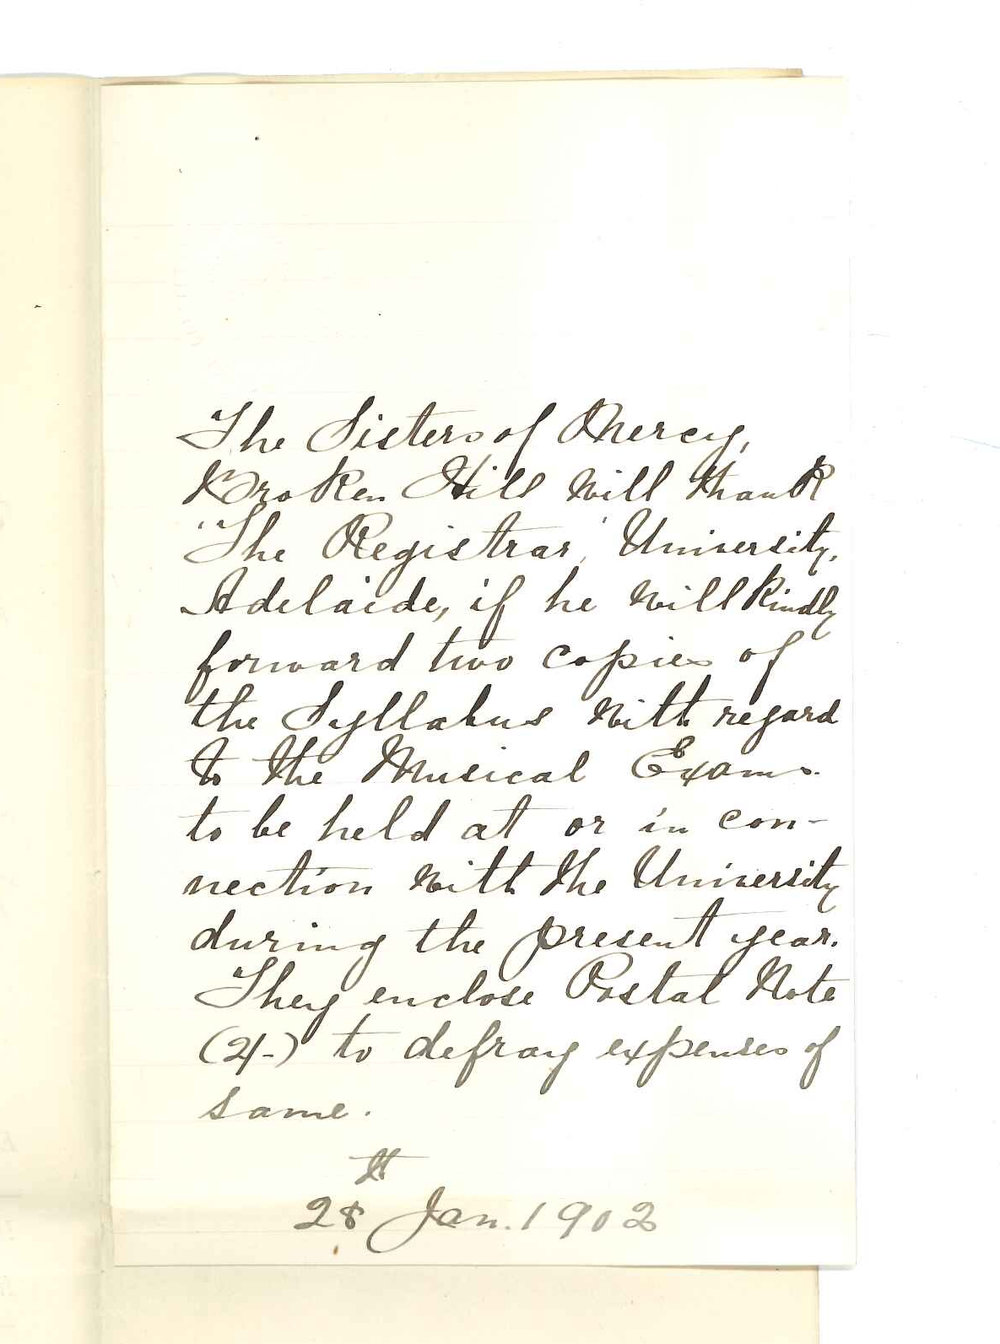 The Sisters of Mercy,
Broken Hill will thank
"The Registrar," University,
Adelaide, if he will kindly
forward two copies of
the Syllabus with regard
to the Musical Exams.
to be held at or in con-
nection with the University
during the present year.
They enclose Postal Note
(2/-) to defray expenses of
same.
th
28 Jan. 1902